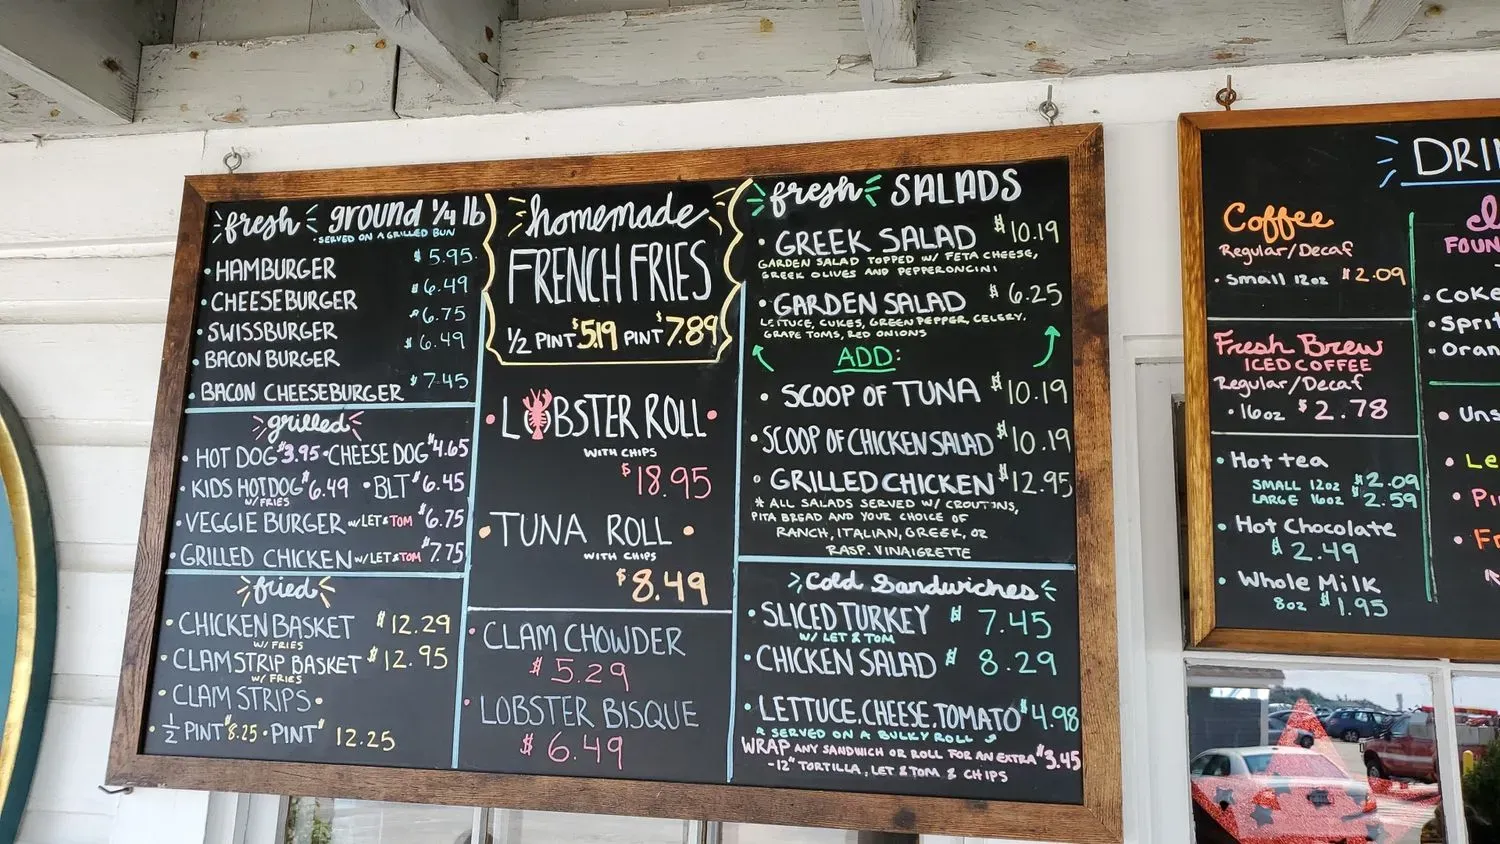 fresh ground 1/4 lb
SERVED ON A GRILLED BUN
• HAMBURGER $5.95
• CHEESEBURGER $6.49
• SWISSBURGER $6.75
• BACON BURGER $6.49
• BACON CHEESEBURGER $7.45
grilled
• HOT DOG $3.95 • CHEESE DOG $4.65
• KIDS HOTDOG $6.49 • BLT $6.45
W/ FRIES
• VEGGIE BURGER W/ LET & TOM $6.75
• GRILLED CHICKEN W/ LET & TOM $7.75
fried
• CHICKEN BASKET $12.29
W/ FRIES
• CLAM STRIP BASKET $12.95
W/ FRIES
• CLAM STRIPS •
• 1/2 PINT $8.25 • PINT $12.25
homemade
FRENCH FRIES
1/2 PINT $5.19 PINT $7.89
• LOBSTER ROLL •
WITH CHIPS
$18.95
• TUNA ROLL •
WITH CHIPS
$8.49
• CLAM CHOWDER
$5.29
• LOBSTER BISQUE
$6.49
fresh SALADS
• GREEK SALAD $10.19
GARDEN SALAD TOPPED W/ FETA CHEESE,
GREEK OLIVES AND PEPPERONCINI
• GARDEN SALAD $6.25
LETTUCE, CUKES, GREEN PEPPER, CELERY,
GRAPE TOMS, RED ONIONS
ADD:
• SCOOP OF TUNA $10.19
• SCOOP OF CHICKEN SALAD $10.19
• GRILLED CHICKEN $12.95
* ALL SALADS SERVED W/ CROUTONS,
PITA BREAD AND YOUR CHOICE OF
RANCH, ITALIAN, GREEK, OR
RASP. VINAIGRETTE
cold Sandwiches
• SLICED TURKEY $7.45
W/ LET & TOM
• CHICKEN SALAD $8.29
• LETTUCE, CHEESE, TOMATO $4.98
SERVED ON A BULKY ROLL
WRAP ANY SANDWICH OR ROLL FOR AN EXTRA $3.45
-12" TORTILLA, LET & TOM & CHIPS
DRI
Coffee
Regular/Decaf
• Small 12oz $2.09
Fresh Brew
ICED COFFEE
Regular/Decaf
• 16oz $2.78
• Hot tea
SMALL 12oz $2.09
LARGE 16oz $2.59
• Hot Chocolate
$2.49
• Whole Milk
8oz $1.95
FOUN
• Coke
• Sprit
• Oran
• Uns
• Le
• Pi
• Fr